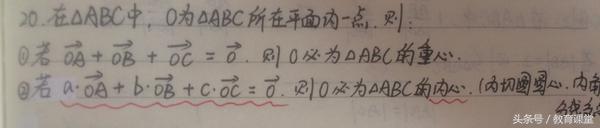 20. 在△ABC中, O为△ABC所在平面内一点. 则:
①若 $\overrightarrow{OA}+\overrightarrow{OB}+\overrightarrow{OC}=\vec{0}$. 则O必为△ABC的重心.
②若 $a\cdot\overrightarrow{OA}+b\cdot\overrightarrow{OB}+c\cdot\overrightarrow{OC}=\vec{0}$. 则O必为△ABC的内心. (内切圆圆心. 内角
头条号 / 教育课堂